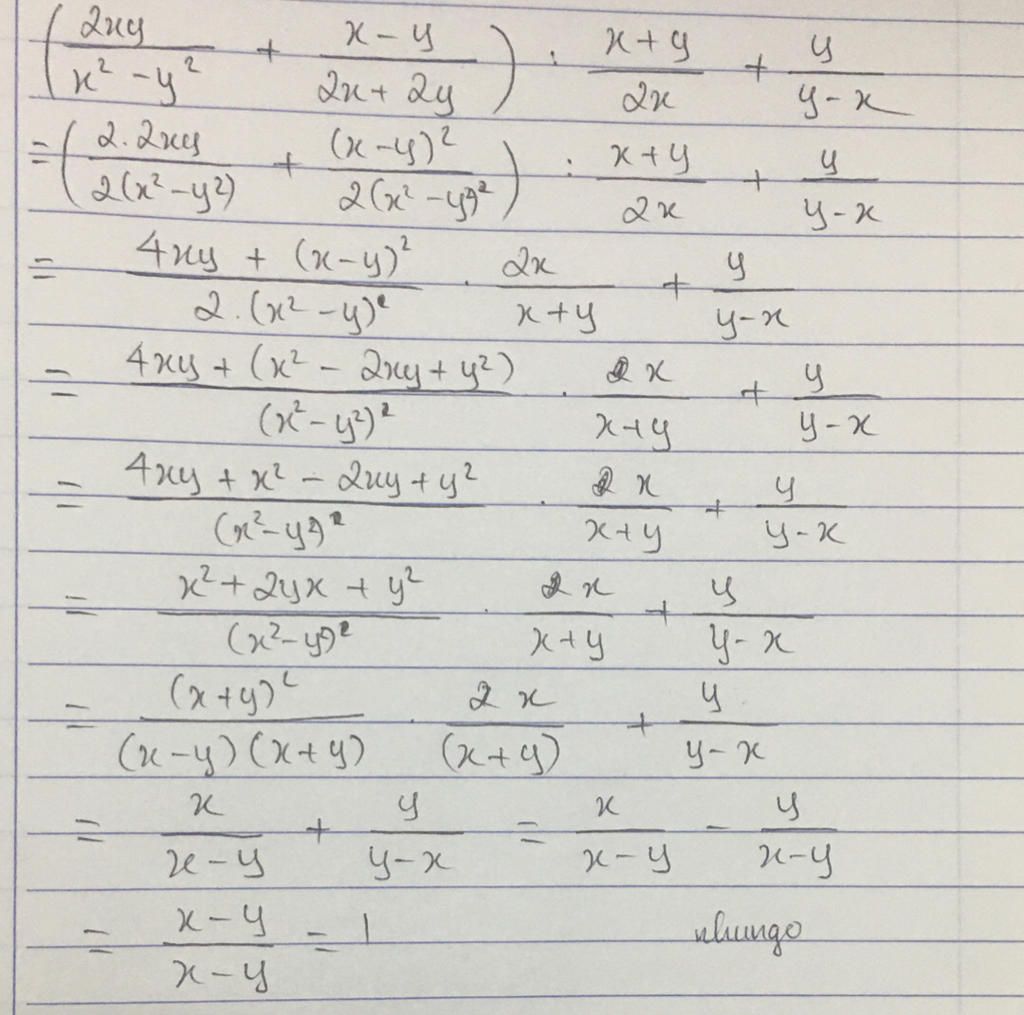 (2xy/(x² - y²) + (x - y)/(2x + 2y)) : (x + y)/2x + y/(y - x)
= (2.2xy/2(x² - y²) + (x - y)²/2(x² - y²)²) : (x + y)/2x + y/(y - x)
= (4xy + (x - y)²)/2.(x² - y)² . 2x/(x + y) + y/(y - x)
= (4xy + (x² - 2xy + y²))/(x² - y²)² . 2x/(x + y) + y/(y - x)
= (4xy + x² - 2xy + y²)/(x² - y²)² . 2x/(x + y) + y/(y - x)
= (x² + 2yx + y²)/(x² - y²)² . 2x/(x + y) + y/(y - x)
= (x + y)²/(x - y)(x + y) . 2x/(x + y) + y/(y - x)
= x/(x - y) + y/(y - x) = x/(x - y) - y/(x - y)
= (x - y)/(x - y) = 1 nhungo